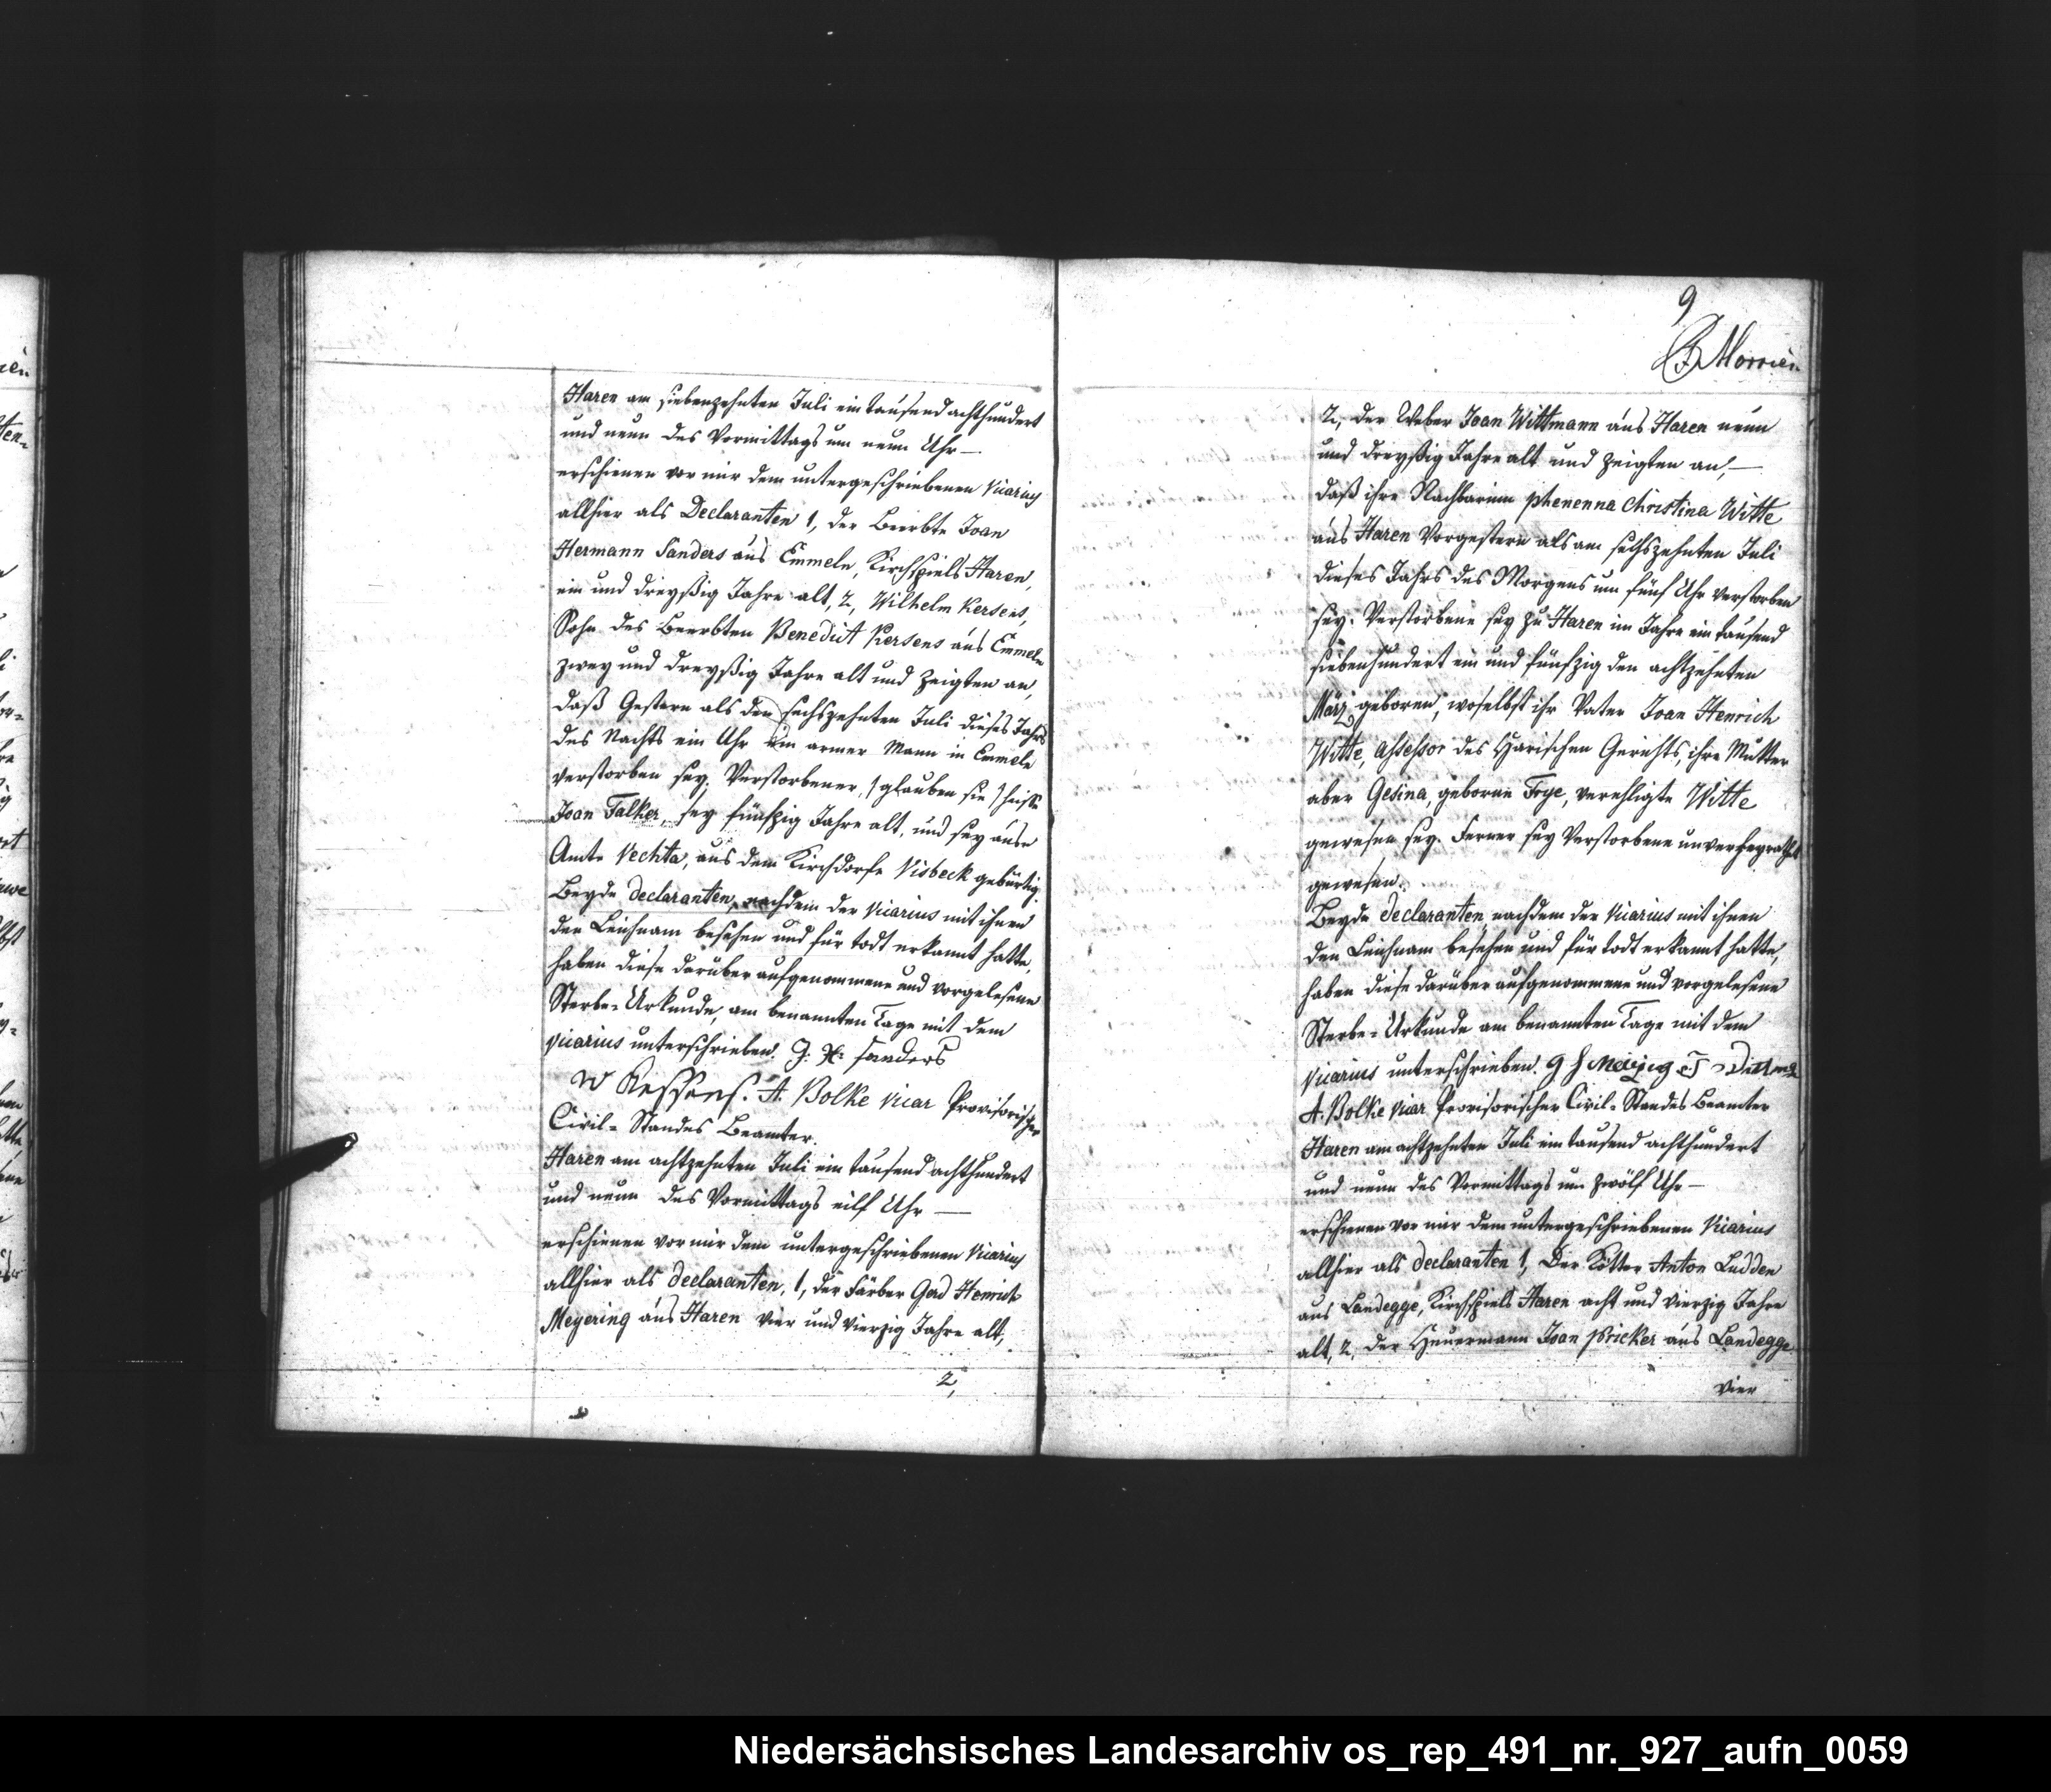 Haren am siebenzehnten Juli ein tausend achthundert
und neun des Vormittags um neun Uhr —
erschienen vor mir dem untergeschriebenen Vicarius
allhier als Declaranten 1, der Beerbte Joan
Hermann Sanders aus Emmeln, Kirchspiels Haren,
ein und dreyßig Jahre alt, 2, Wilhelm Kersens,
Sohn des Beerbten Benedict Kersens aus Emmeln
zwey und dreyßig Jahre alt und zeigten an,
daß Gestern als den sechszehnten Juli dieses Jahrs
des Nachts ein Uhr ein armer Mann in Emmeln
verstorben sey. Verstorbener, (glauben sie) heiße
Joan Falker, sey fünfzig Jahre alt, und sey aus
Amte Vechta, aus dem Kirchdorfe Visbeck gebürtig.
Beyde declaranten, nachdem der Vicarius mit ihnen
den Leichnam besehen und für todt erkannt hatte,
haben diese darüber aufgenommene und vorgelesene
Sterbe-Urkunde, am benannten Tage mit dem
Vicarius unterschrieben. J: H: Sanders
W Kessens. A. Bolke Vicar Provisorischer
Civil-Standes Beamter.
Haren am achtzehnten Juli ein tausend achthundert
und neun des Vormittags eilf Uhr —
erschienen vor mir dem untergeschriebenen Vicarius
allhier als declaranten, 1, der Färber Gerd Henrich
Meyering aus Haren vier und vierzig Jahre alt,
2,
9
Morrien
2, der Weber Joan Wittmann aus Haren neun
und dreyßig Jahre alt und zeigten an, —
daß ihre Nachbarinn phenenna Christina Witte
aus Haren Vorgestern als am sechszehnten Juli
dieses Jahrs des Morgens um fünf Uhr verstorben
sey. Verstorbene sey zu Haren im Jahre ein tausend
siebenhundert ein und fünfzig den achtzehnten
März geboren, woselbst ihr Vater Joan Henrich
Witte, Assessor des Harischen Gerichts, ihre Mutter
aber Gesina, geborne Frye, verehligte Witte
gewesen sey. Ferner sey Verstorbene unverheyrathet
gewesen.
Beyde declaranten, nachdem der Vicarius mit ihnen
den Leichnam besehen und für todt erkannt hatte,
haben diese darüber aufgenommene und vorgelesene
Sterbe-Urkunde am benannten Tage mit dem
Vicarius unterschrieben. G H
A. Bolke Vicar Provisorischer Civil-Standes Beamter
Haren am achtzehnten Juli ein tausend achthundert
und neun des Vormittags um zwölf Uhr —
erschienen vor mir dem untergeschriebenen Vicarius
allhier als declaranten 1, Der Kötter Anton Ludden
aus Landegge, Kirchspiels Haren acht und vierzig Jahre
alt, 2, der Heuermann Joan Pricker aus Landegge
vier
Niedersächsisches Landesarchiv os_rep_491_nr._927_aufn_0059